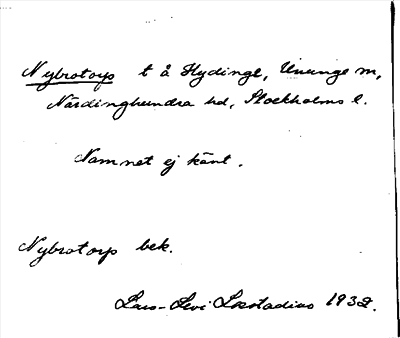 Nybrotorp t å Hydinge, Ununge sn,
Närdinghundra hd, Stockholms l.
Namnet ej känt.
Nybrotorp bek.
Lars-Levi Læstadius 1932.